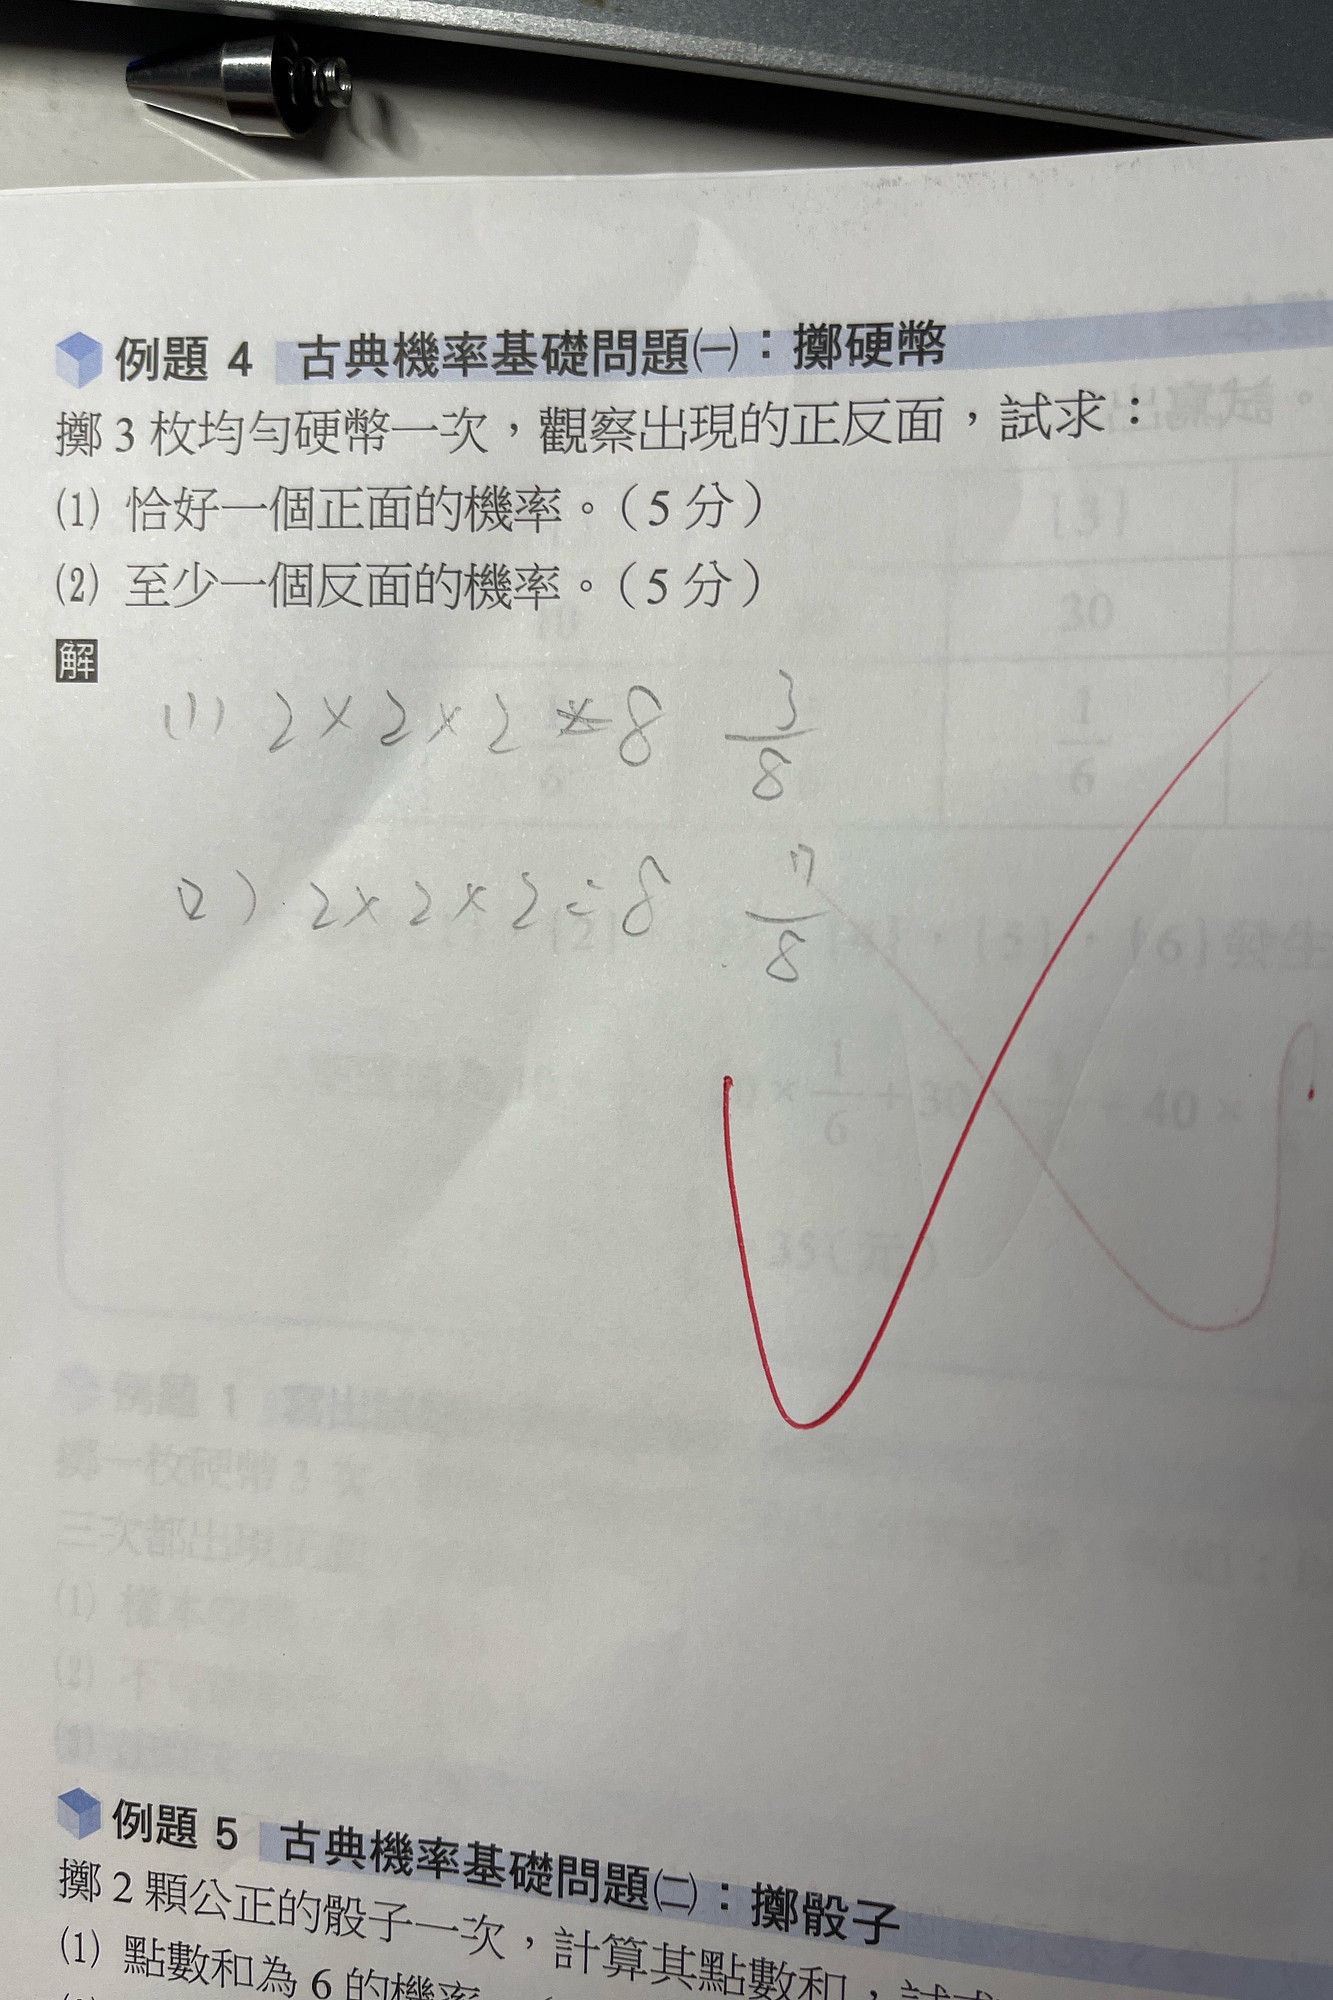 例題 4 古典機率基礎問題㈠：擲硬幣
擲 3 枚均勻硬幣一次，觀察出現的正反面，試求：
⑴ 恰好一個正面的機率。（5 分）
⑵ 至少一個反面的機率。（5 分）
解
(1) 2×2×2=8 3/8
(2) 2×2×2=8 7/8
例題 5 古典機率基礎問題㈡：擲骰子
擲 2 顆公正的骰子一次，計算其點數和，試求
⑴ 點數和為 6 的機率